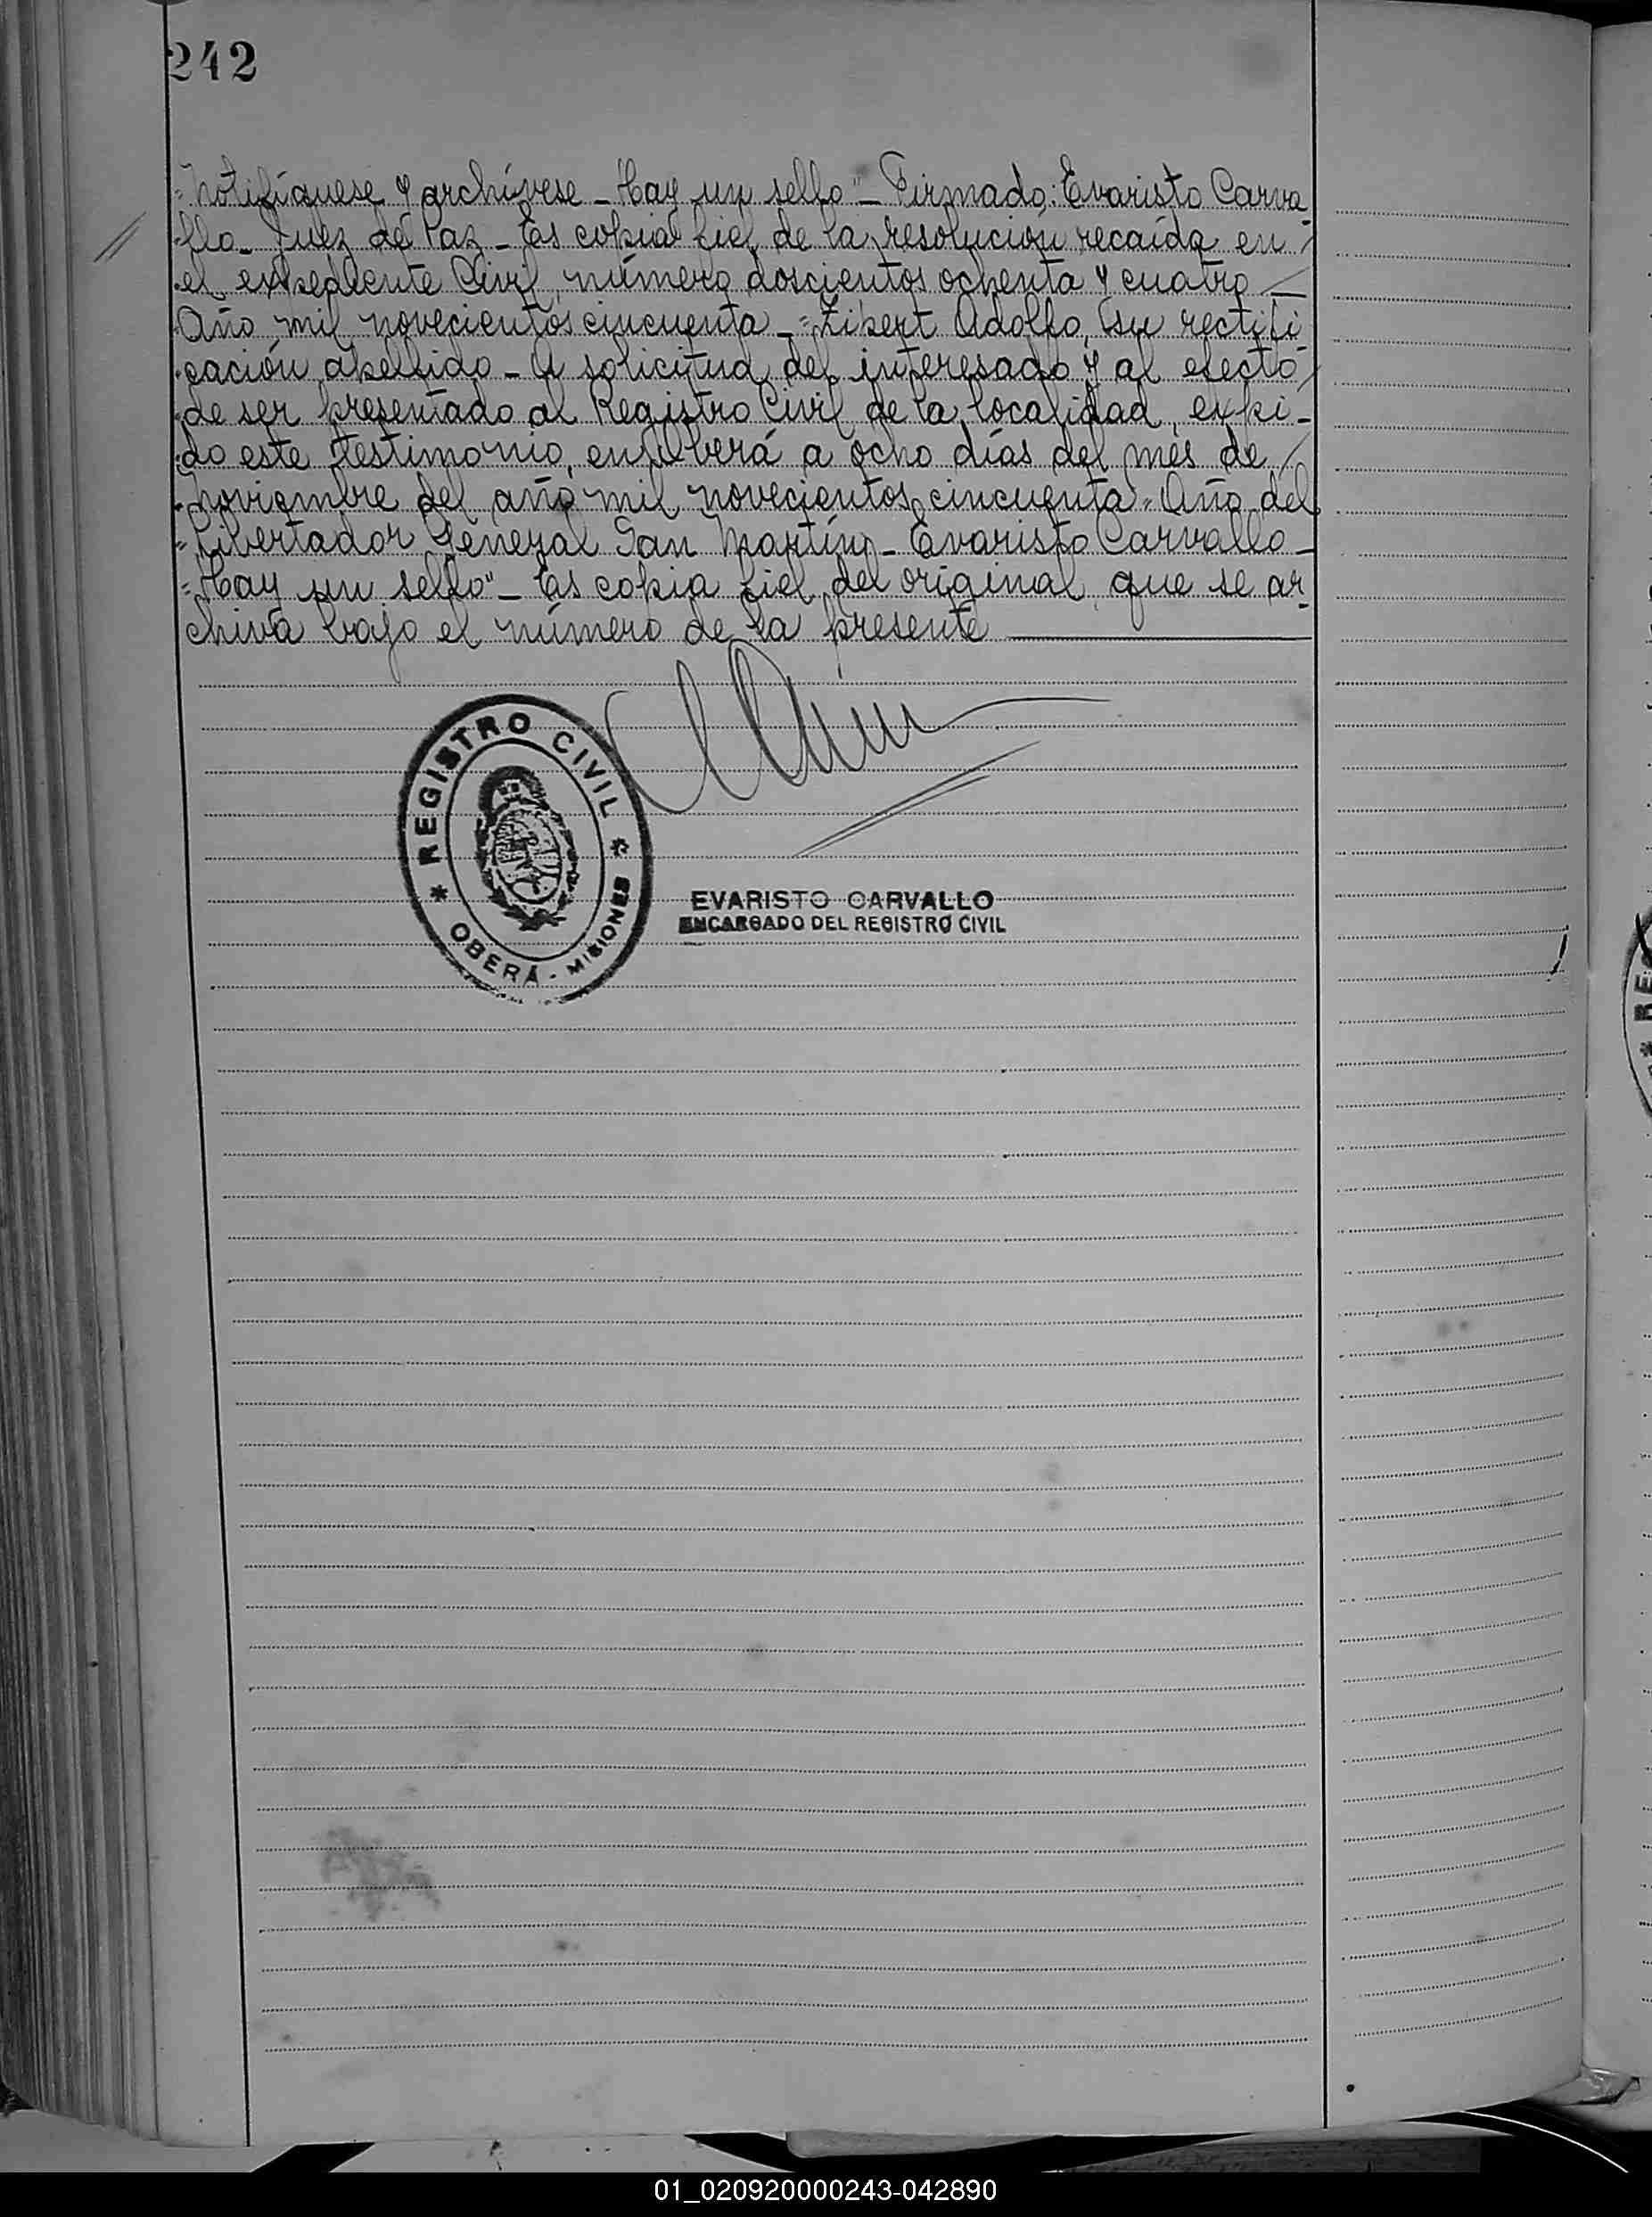 242
"Notifíquese y archívese - Hay un sello" - Firmado: Evaristo Carva-
llo - Juez de Paz - Es copia fiel de la resolución recaída en
el expediente Civil, número doscientos ochenta y cuatro -
Año mil novecientos cincuenta - "Zibert Adolfo, su rectifi
cación apellido - A solicitud del interesado y al efecto
de ser presentado al Registro Civil de la localidad, expi-
do este testimonio, en Oberá a ocho días del mes de
noviembre del año mil novecientos cincuenta "Año del
"Libertador General San Martín - Evaristo Carvallo -
"Hay un sello" - Es copia fiel del original que se ar-
chiva bajo el número de la presente
REGISTRO CIVIL
* OBERÁ - MISIONES *
EVARISTO CARVALLO
ENCARGADO DEL REGISTRO CIVIL
01_020920000243-042890